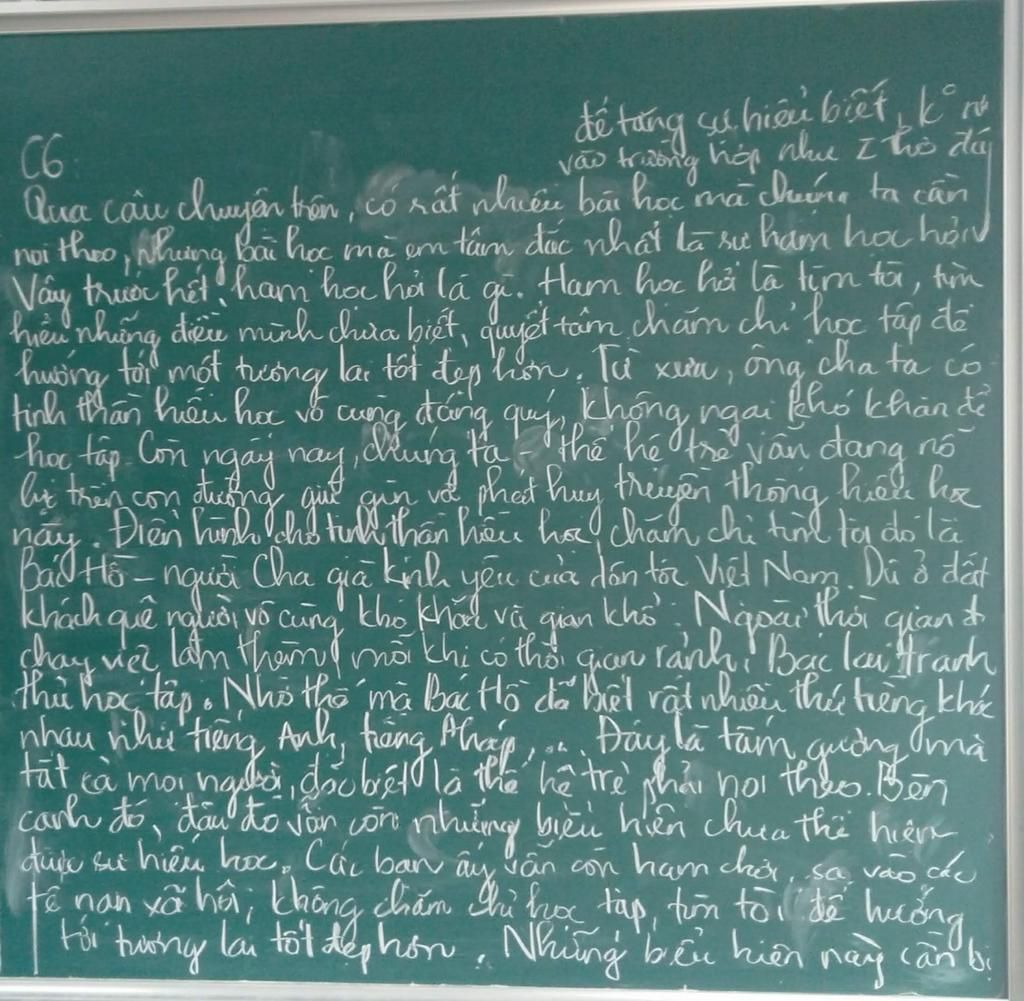 để tăng sự hiểu biết, k°
vào trường hợp như I hồ đáy
C6:
Qua câu chuyện trên, có rất nhiều bài học mà chúng ta cần
noi theo, nhưng bài học mà em tâm đắc nhất là sự ham học hỏi
Vậy trước hết, ham học hỏi là gì. Ham học hỏi là tìm tòi, tìm
hiểu những điều mình chưa biết, quyết tâm chăm chỉ học tập để
hướng tới một tương lai tốt đẹp hơn. Từ xưa, ông cha ta có
tinh thần hiếu học vô cùng đáng quý, không ngại khó khăn để
học tập. Còn ngày nay, chúng ta - thế hệ trẻ vẫn đang nỗ
lực trên con đường giữ gìn và phát huy truyền thống hiếu học
này. Điển hình cho tinh thần hiếu học, chăm chỉ tìm tòi đó là
Bác Hồ - người Cha già kính yêu của dân tộc Việt Nam. Dù ở đất
khách quê người vô cùng khó khăn và gian khổ. Ngoài thời gian
chạy việc làm thêm, mỗi khi có thời gian rảnh, Bác lại tranh
thủ học tập. Nhờ thế mà Bác Hồ đã biết rất nhiều thứ tiếng khác
nhau như tiếng Anh, tiếng Pháp,... Đây là tấm gương mà
tất cả mọi người, đặc biệt là thế hệ trẻ phải noi theo. Bên
cạnh đó, đâu đó vẫn còn những biểu hiện chưa thể hiện
được sự hiếu học. Các bạn ấy vẫn còn ham chơi, sa vào các
tệ nạn xã hội, không chăm chỉ học tập, tìm tòi để hướng
tới tương lai tốt đẹp hơn. Những biểu hiện này cần bị